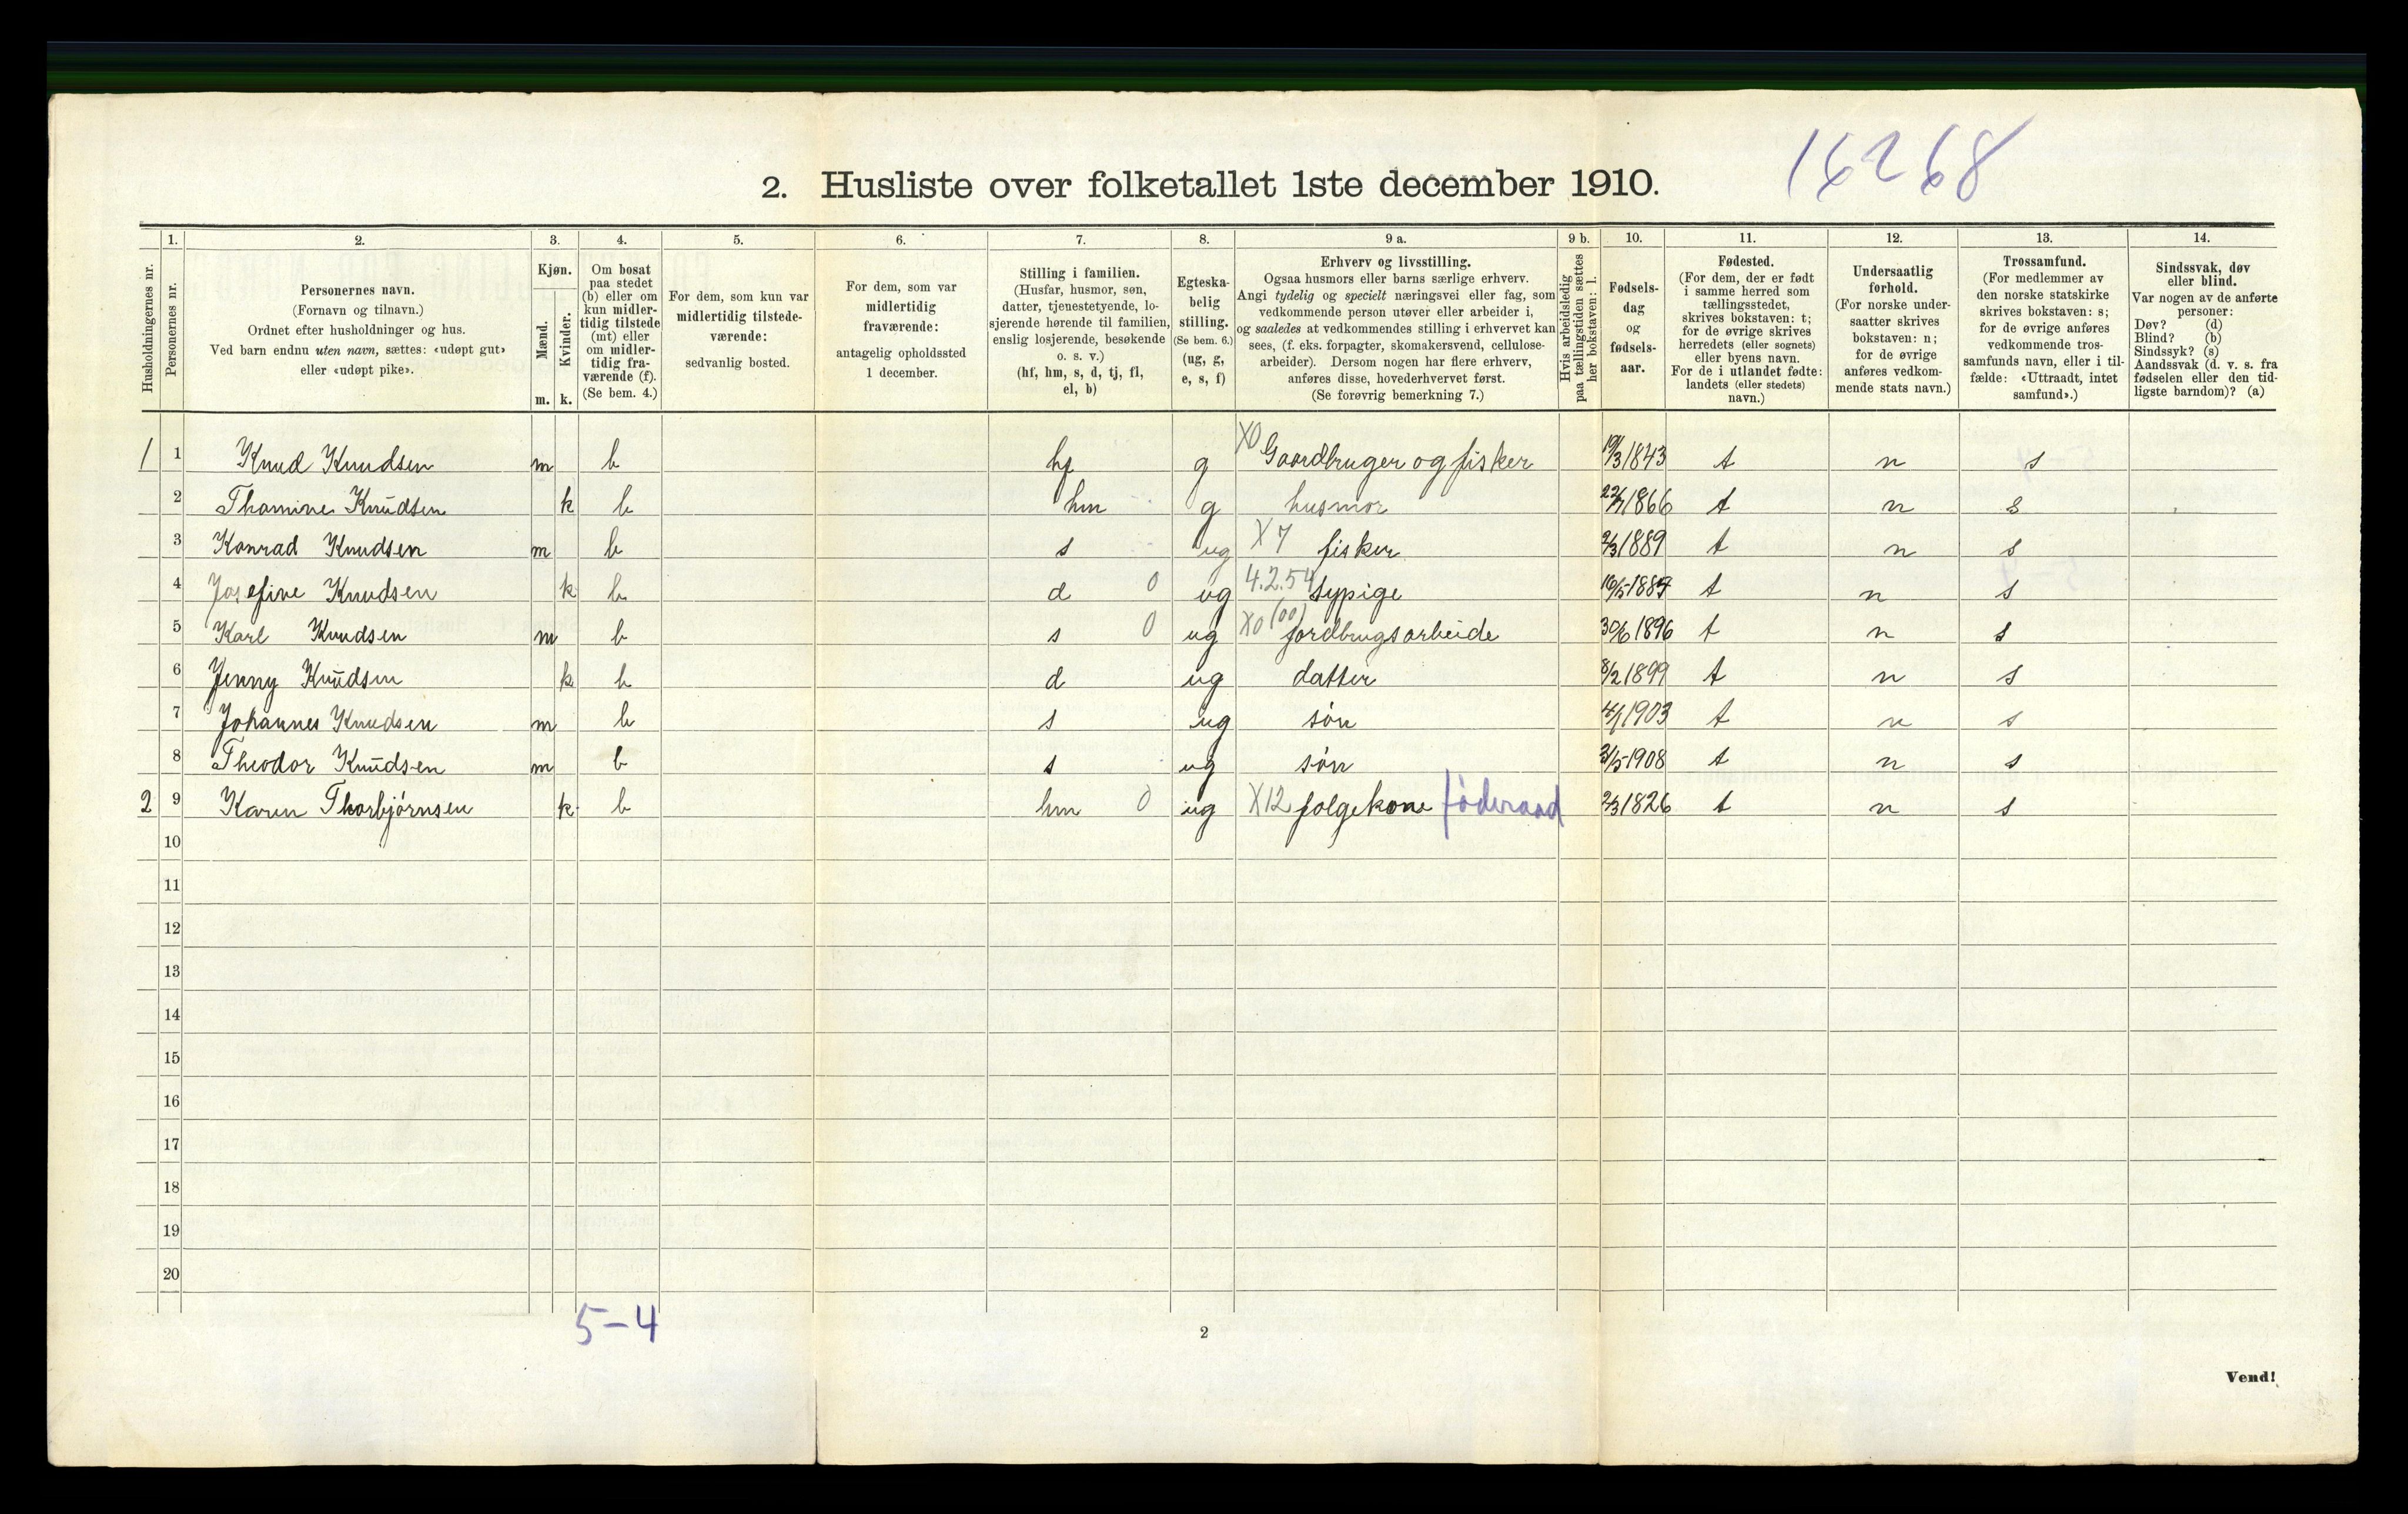 16268
2. Husliste over folketallet 1ste december 1910.
Husholdningernes nr.
1. Personernes nr.
2. Personernes navn.
(Fornavn og tilnavn.)
Ordnet efter husholdninger og hus.
Ved barn endnu uten navn, sættes: «udøpt gut»
eller «udøpt pike».
3. Kjøn.
Mænd. m.
Kvinder. k.
4. Om bosat
paa stedet
(b) eller om
kun midler-
tidig tilstede
(mt) eller
om midler-
tidig fra-
værende (f).
(Se bem. 4.)
5. For dem, som kun var
midlertidig tilstede-
værende:
sedvanlig bosted.
6. For dem, som var
midlertidig
fraværende:
antagelig opholdssted
1 december.
7. Stilling i familien.
(Husfar, husmor, søn,
datter, tjenestetyende, lo-
sjerende hørende til familien,
enslig losjerende, besøkende
o. s. v.)
(hf, hm, s, d, tj, fl,
el, b)
8. Egteska-
belig
stilling.
(Se bem. 6.)
(ug, g,
e, s, f)
9 a. Erhverv og livsstilling.
Ogsaa husmors eller barns særlige erhverv.
Angi tydelig og specielt næringsvei eller fag, som
vedkommende person utøver eller arbeider i,
og saaledes at vedkommendes stilling i erhvervet kan
sees, (f. eks. forpagter, skomakersvend, cellulose-
arbeider). Dersom nogen har flere erhverv,
anføres disse, hovederhvervet først.
(Se forøvrig bemerkning 7.)
9 b. Hvis arbeidsledig
paa tællingstiden sættes
her bokstaven: l.
10. Fødsels-
dag
og
fødsels-
aar.
11. Fødested.
(For dem, der er født
i samme herred som
tællingsstedet,
skrives bokstaven: t;
for de øvrige skrives
herredets (eller sognets)
eller byens navn.
For de i utlandet fødte:
landets (eller stedets)
navn.)
12. Undersaatlig
forhold.
(For norske under-
saatter skrives
bokstaven: n;
for de øvrige
anføres vedkom-
mende stats navn.)
13. Trossamfund.
(For medlemmer av
den norske statskirke
skrives bokstaven: s;
for de øvrige anføres
vedkommende tros-
samfunds navn, eller i til-
fælde: «Uttraadt, intet
samfund».)
14. Sindssvak, døv
eller blind.
Var nogen av de anførte
personer:
Døv? (d)
Blind? (b)
Sindssyk? (s)
Aandssvak (d. v. s. fra
fødselen eller den tid-
ligste barndom)? (a)
1 1 Knud Knudsen m b hf g X0 Gaardbruger og fisker 19/3 1843 t n s
2 Thomine Knudsen k b hm g husmor 22/7 1866 t n s
3 Konrad Knudsen m b s ug X7 fisker 2/3 1889 t n s
4 Josefine Knudsen k b d 0 ug 4.2.54 sypige t n s
5 Karl Knudsen m b s 0 ug X0 (00) jordbrugsarbeide 30/6 1896 t n s
6 Jenny Knudsen k b d ug datter 8/2 1899 t n s
7 Johannes Knudsen m b s ug søn 4/1 1903 t n s
8 Theodor Knudsen m b s ug søn 1908 t n s
2 9 Karen Thorbjørnsen k b hm 0 ug X12 folgekone føderaad 2/3 1826 t n s
10
11
12
13
14
15
16
17
18
19
20
5-4
2
Vend!